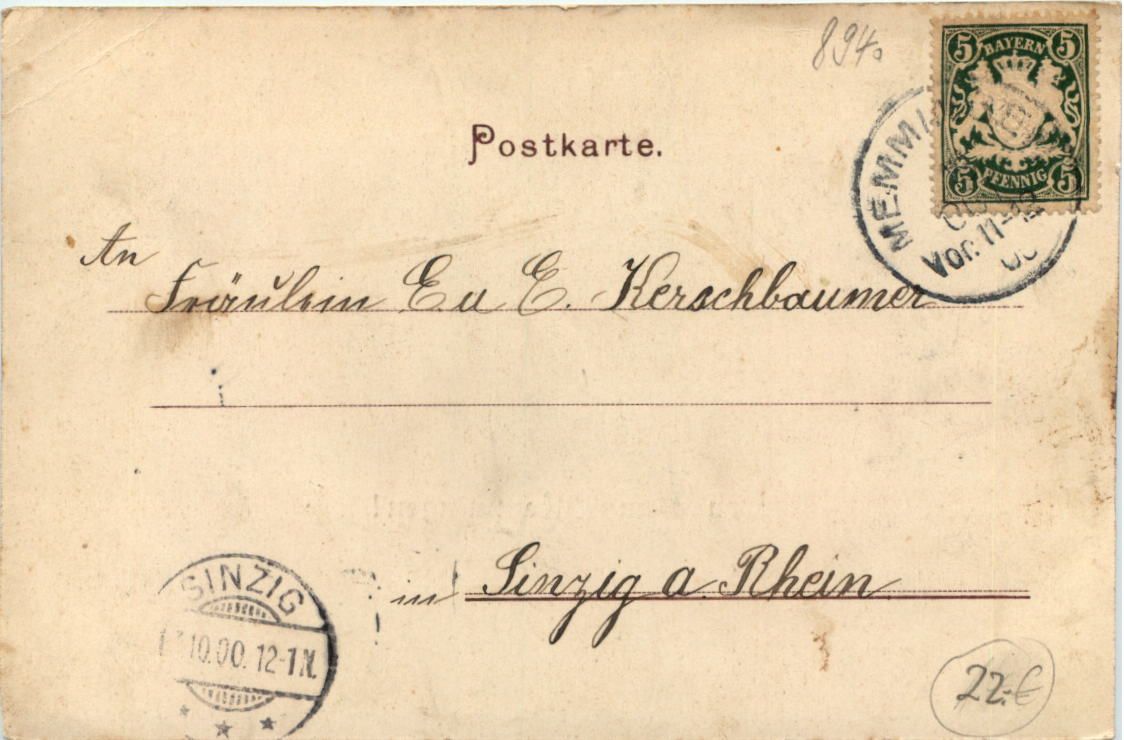 894.
5 BAYERN 5
5 PFENNIG 5
MEMMI
Vor. 11-12
00
Postkarte.
An
Fräulein E u E. Kerschbaumer
in Sinzig a. Rhein
SINZIG
10.00. 12-1 N.
22.-€